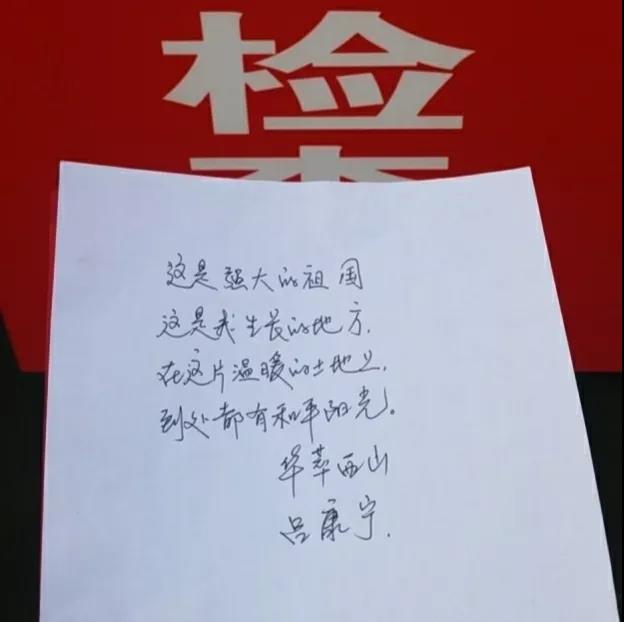 检
这是强大的祖国
这是我生长的地方.
在这片温暖的土地上.
到处都有和平阳光。
华萃西山
吕康宁.